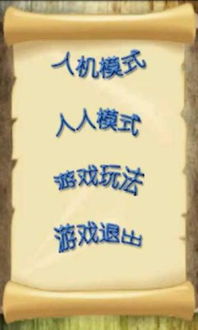 人机模式
人人模式
游戏玩法
游戏退出